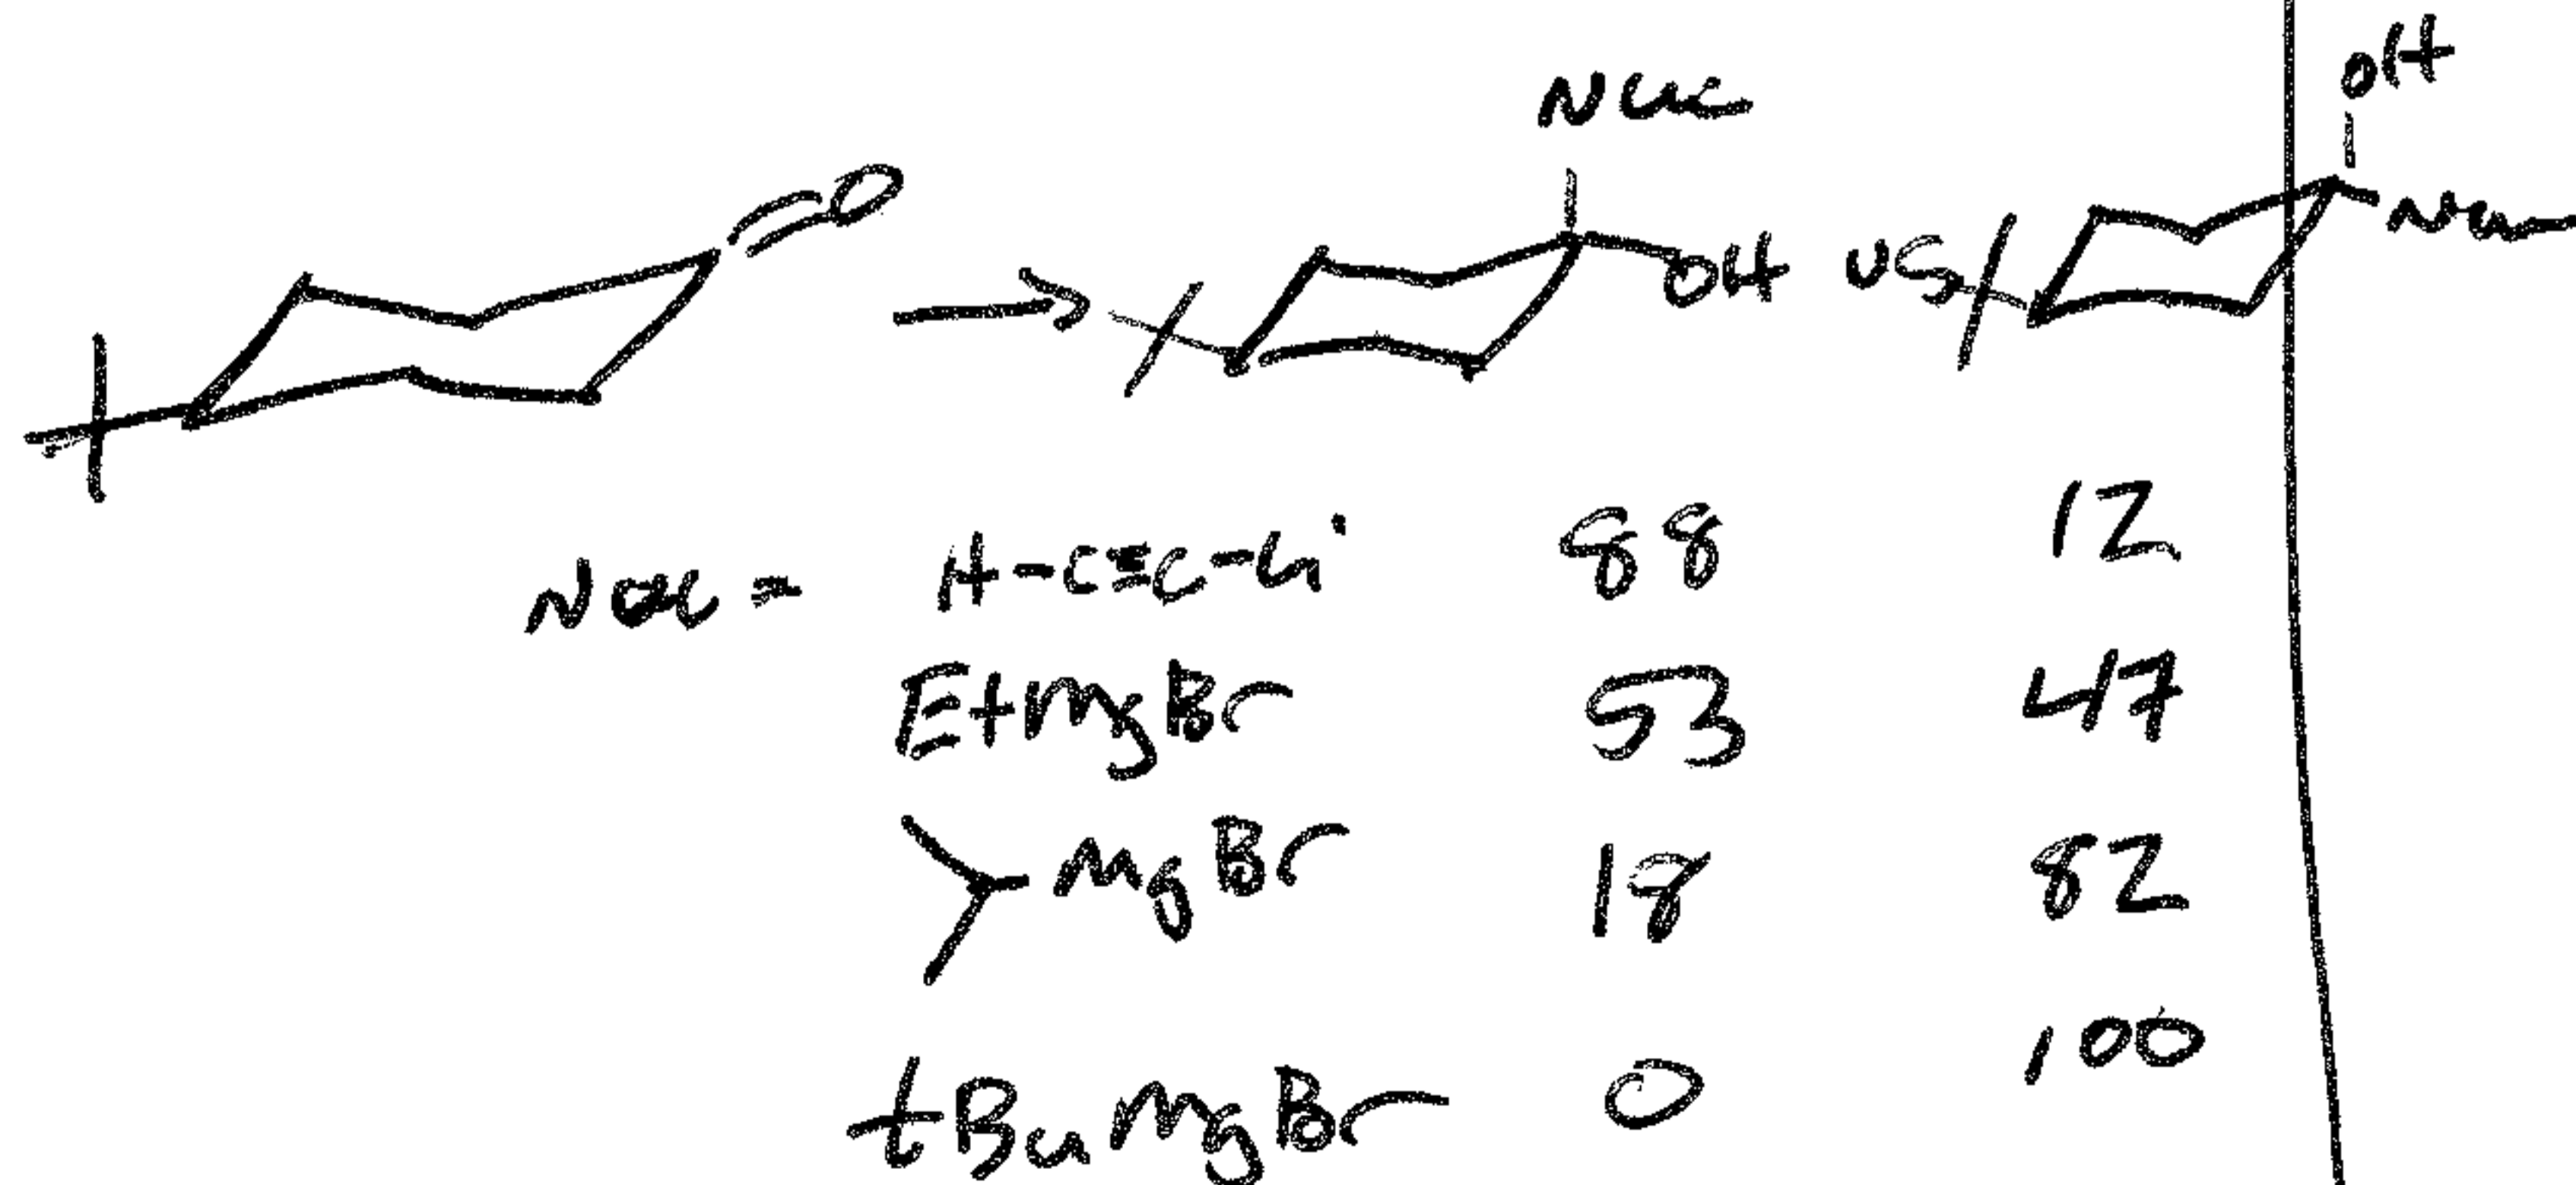 OH
Nuc
O
OH
VS
Nuc
Nuc = H-C≡C-Li 88 12
EtMgBr 53 47
MgBr 18 82
tBuMgBr 0 100